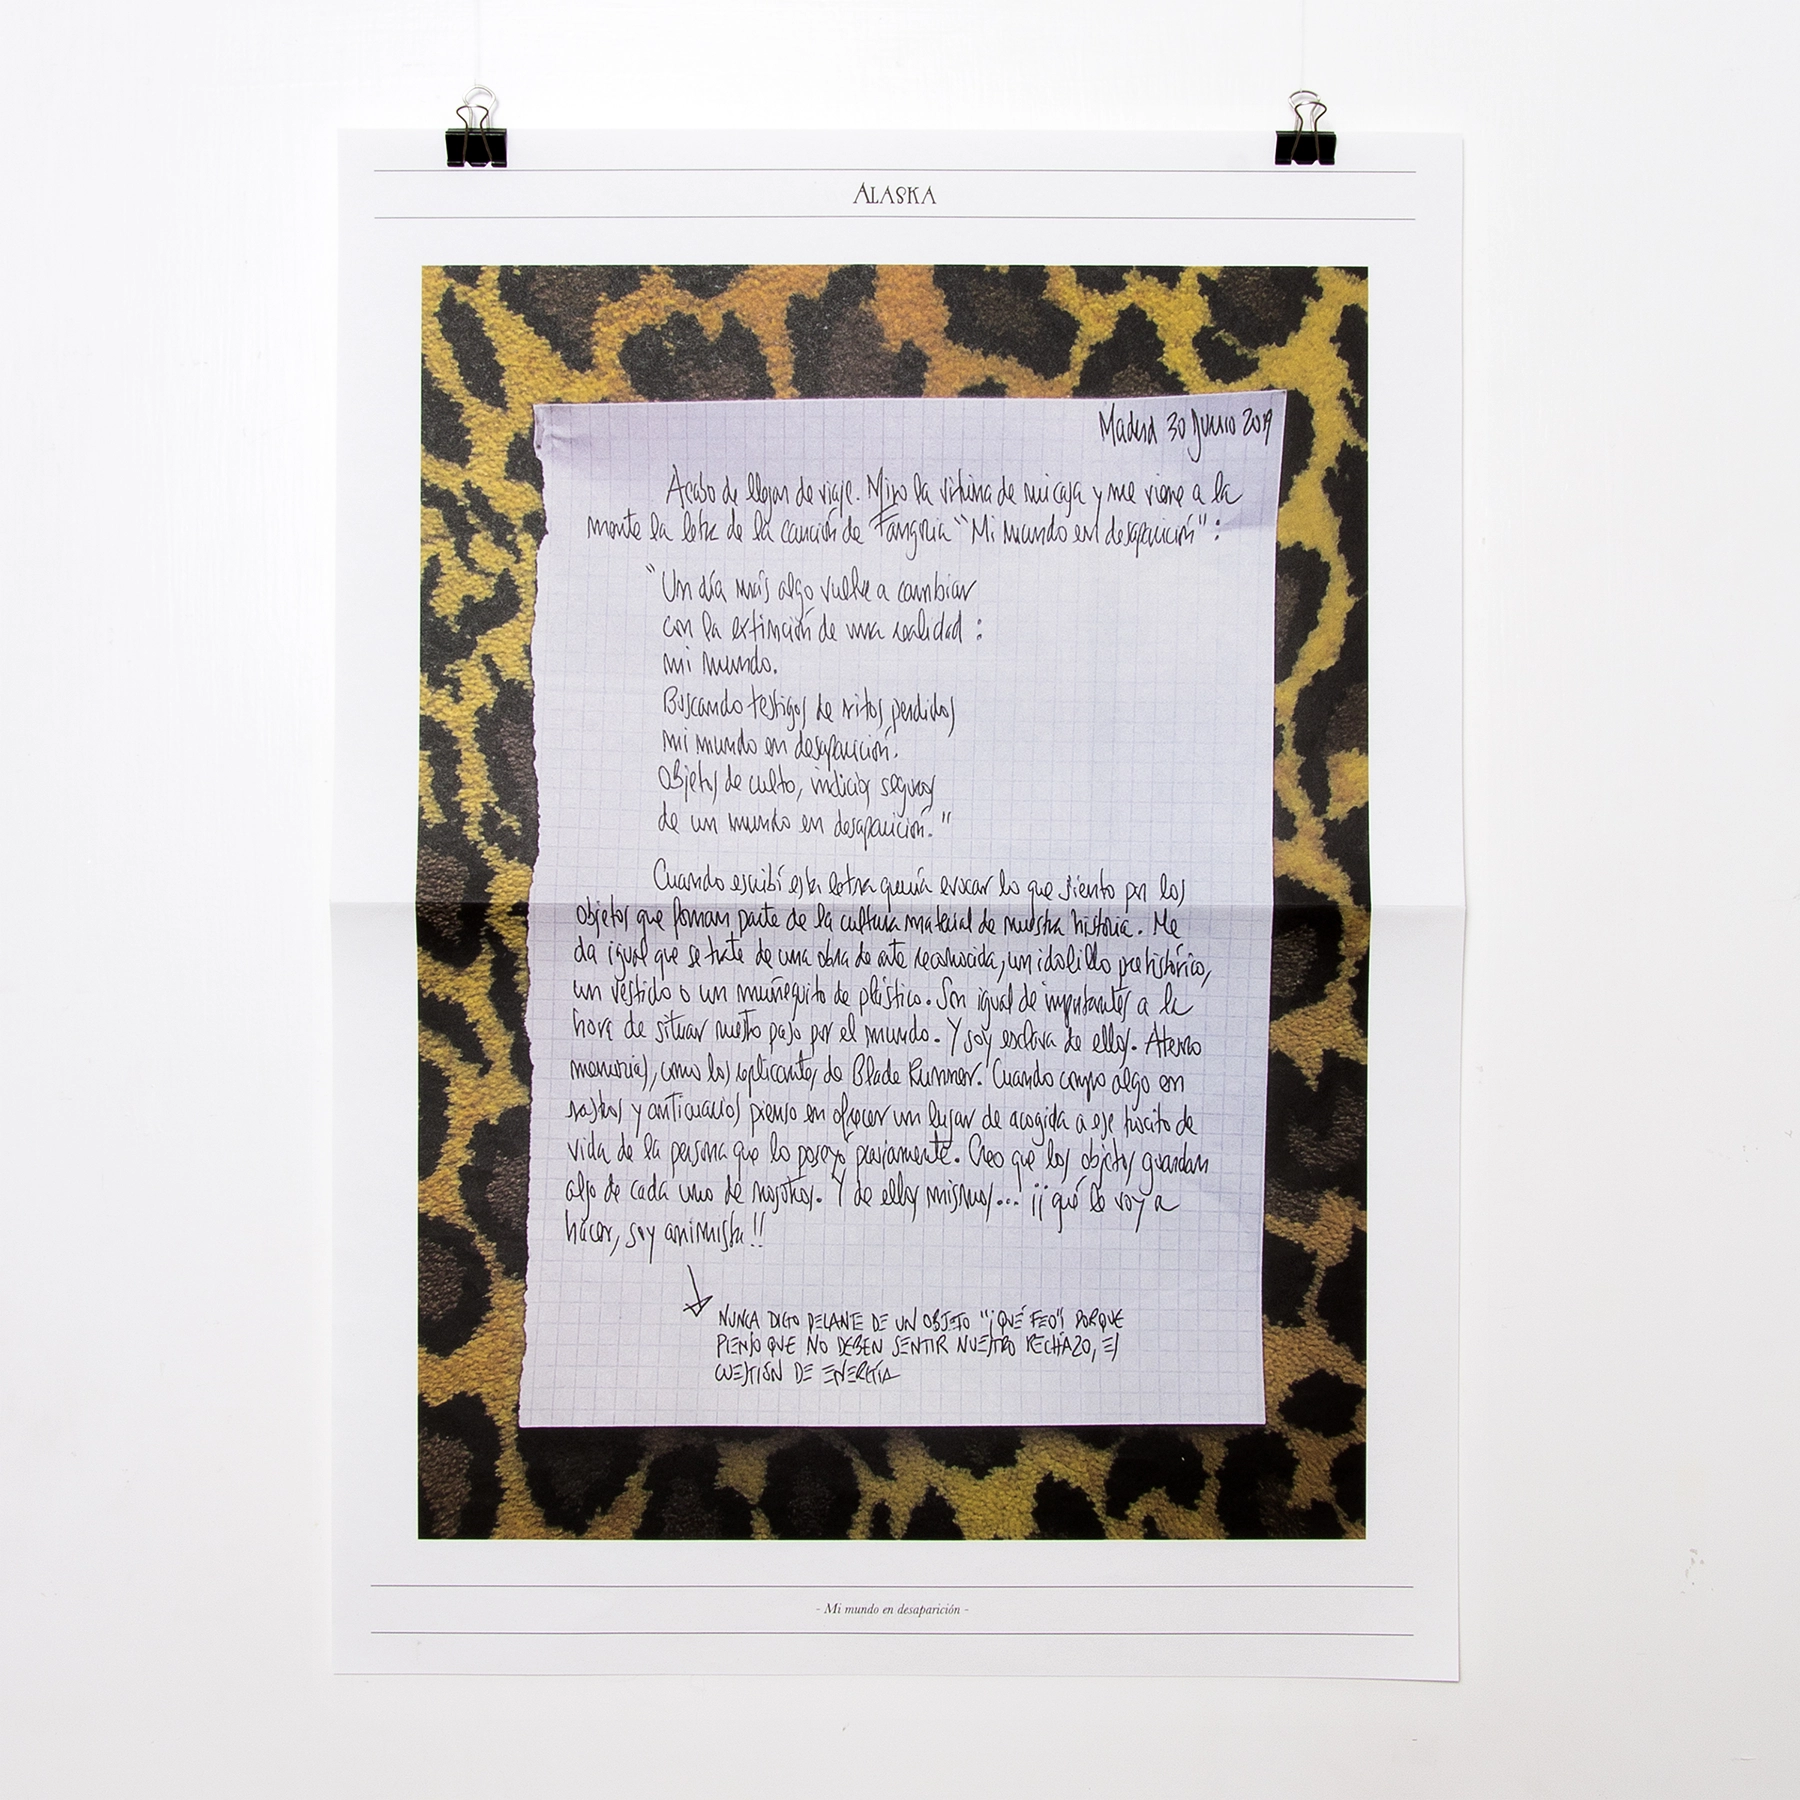 ALASKA
Madrid 30 Junio 2019
Acabo de llegar de viaje. Miro la vitrina de mi casa y me viene a la
mente la letra de la canción de Fangoria "Mi mundo en desaparición":
"Un día más algo vuelve a cambiar
con la extinción de una realidad:
mi mundo.
Buscando testigos de ritos perdidos
mi mundo en desaparición.
Objetos de culto, indicios seguros
de un mundo en desaparición."
Cuando escribí esta letra quería evocar lo que siento por los
objetos que forman parte de la cultura material de nuestra historia. Me
da igual que se trate de una obra de arte reconocida, un idolillo prehistórico,
un vestido o un muñequito de plástico. Son igual de importantes a la
hora de situar nuestro paso por el mundo. Y soy esclava de ellos. Atesoro
memorias, como los replicantes de Blade Runner. Cuando compro algo en
rastros y anticuarios pienso en ofrecer un lugar de acogida a ese trocito de
vida de la persona que lo poseyó previamente. Creo que los objetos guardan
algo de cada uno de nosotros. Y de ellos mismos... ¡¡qué le voy a
hacer, soy animista!!
NUNCA DIGO DELANTE DE UN OBJETO "¡QUÉ FEO!" PORQUE
PIENSO QUE NO DEBEN SENTIR NUESTRO RECHAZO, ES
CUESTIÓN DE ENERGÍA
- Mi mundo en desaparición -